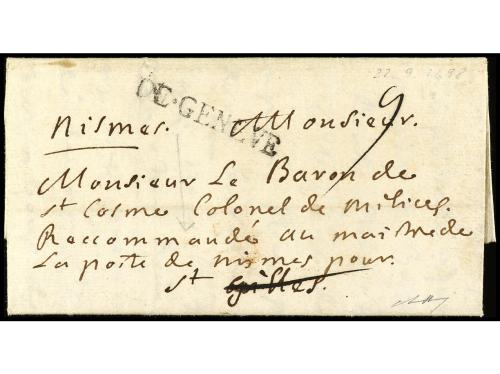 22 9 1698
DE·GENEVE
Nismes. Monsieur. 9
Monsieur Le Baron de
st Cosme Colonel de milices.
Reccommandé au maistre de
La poste de nismes pour
st Gilles.